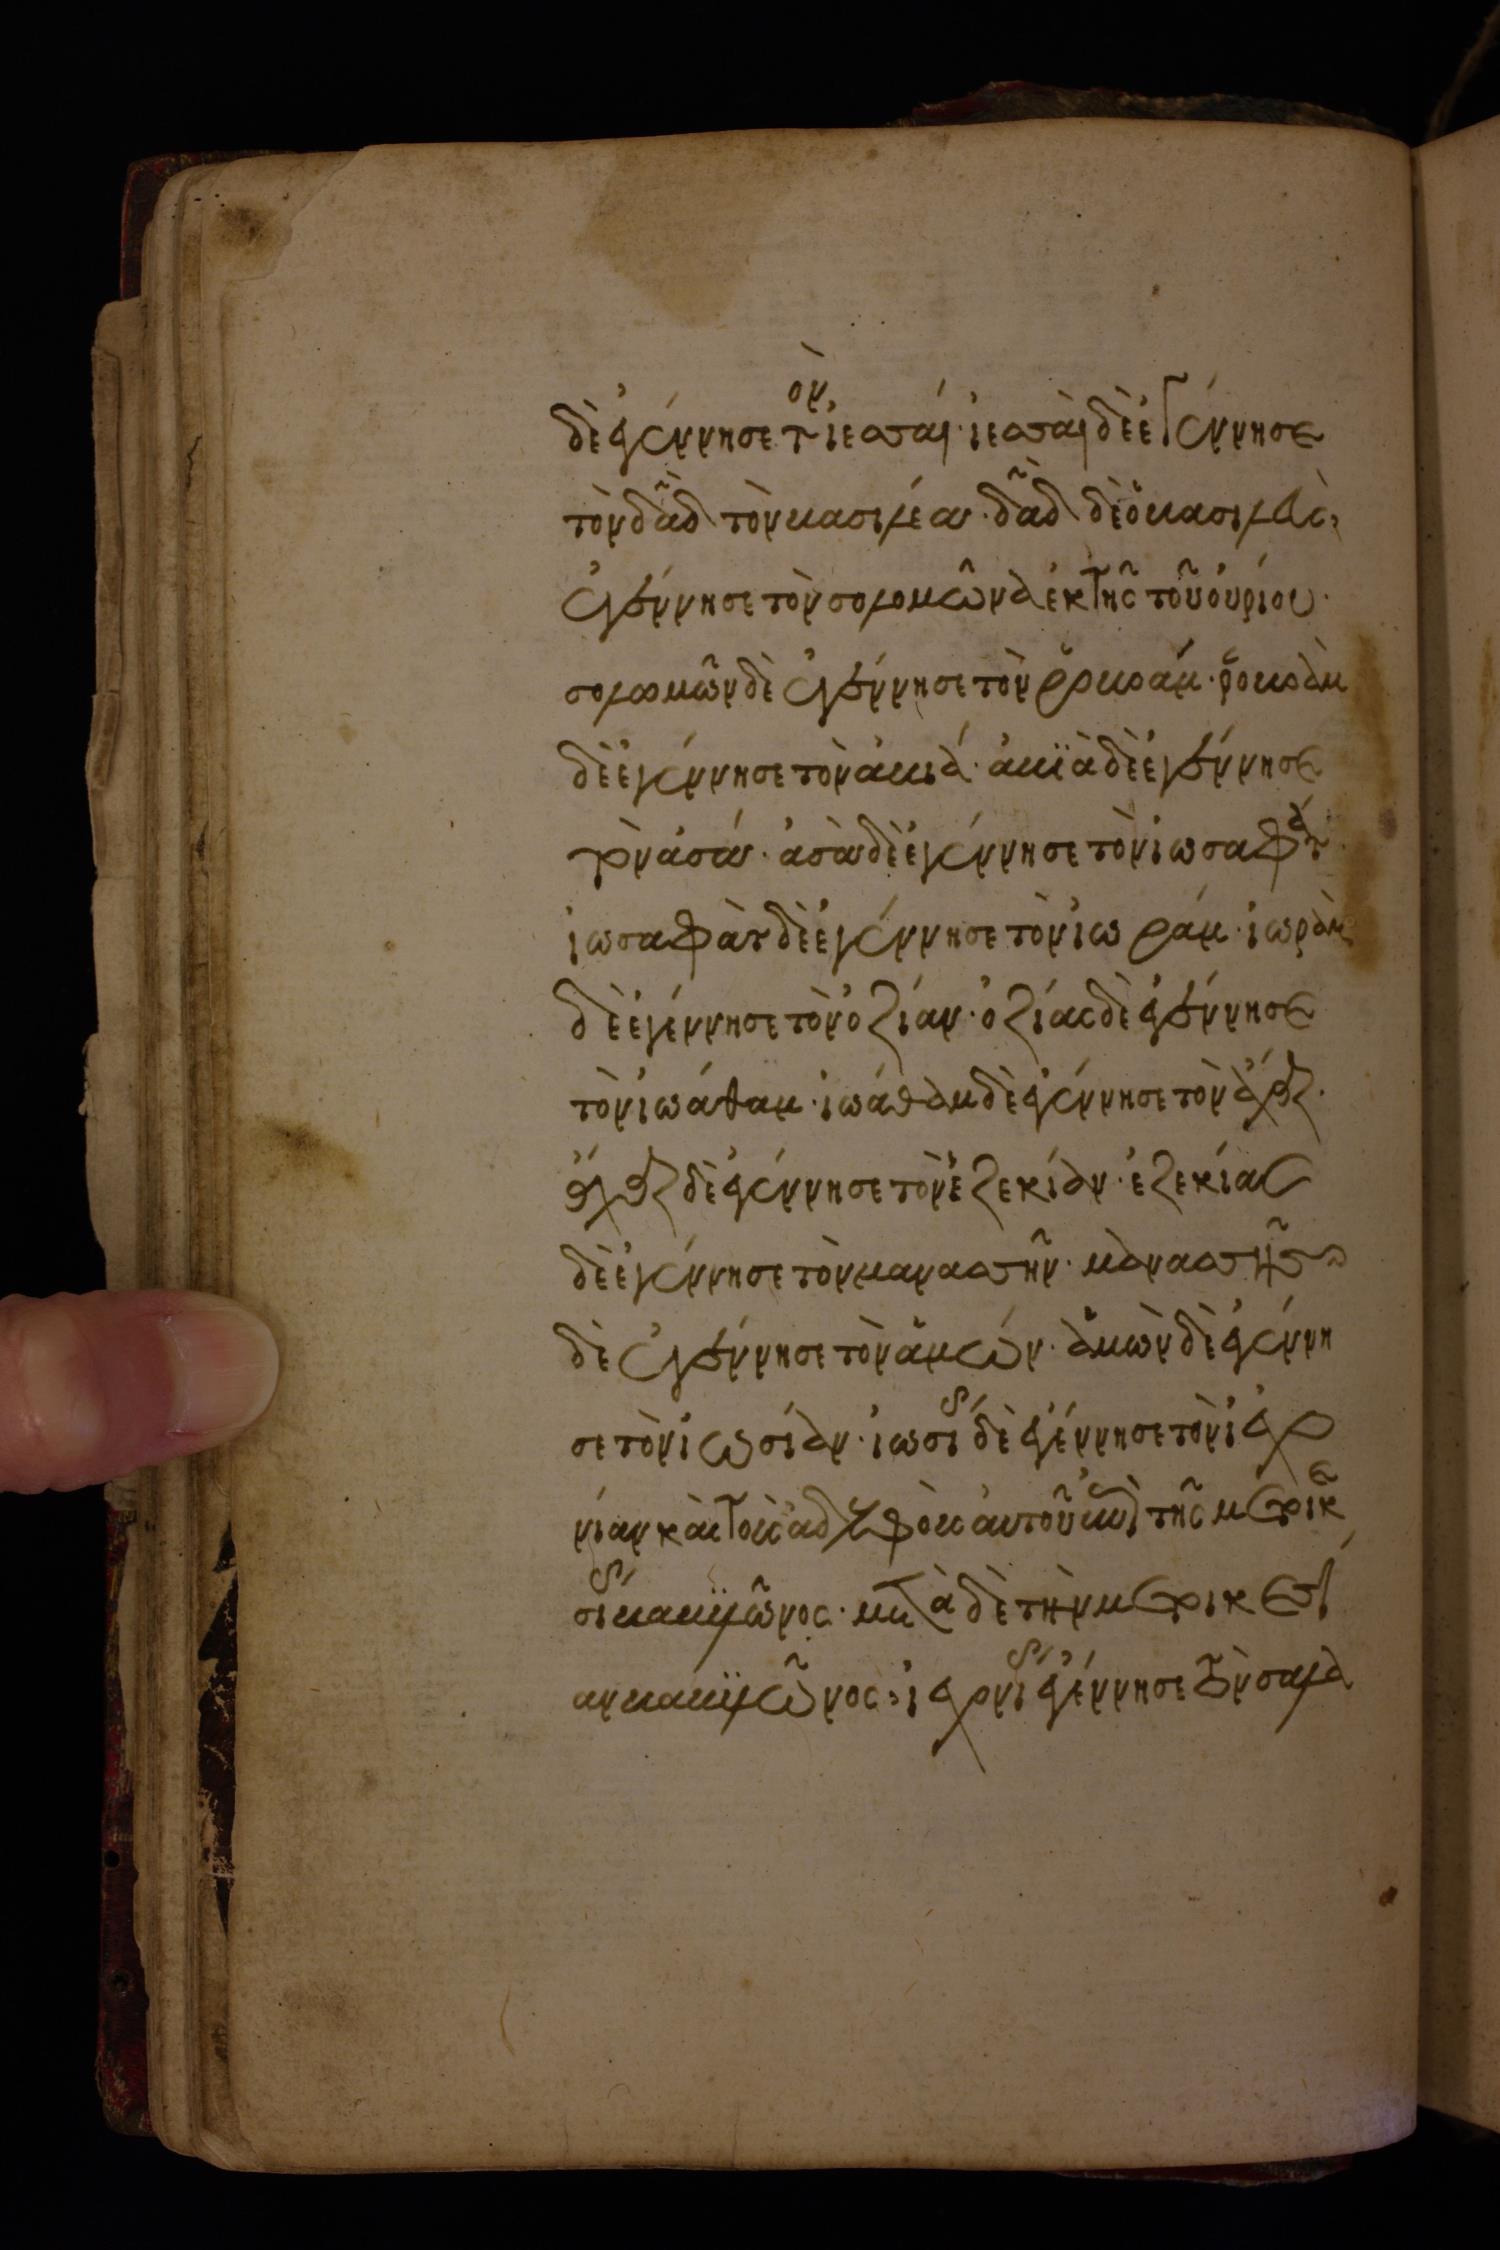 δὲ ἐγέννησε τὸν ἰεσσαί· ἰεσσαὶ δὲ ἐγέννησε
τὸν δᾱδ τὸν βασιλέα· δᾱδ δὲ ὁ βασιλεὺς
ἐγέννησε τὸν σολομῶνα ἐκ τῆς τοῦ οὐρίου·
σολομῶν δὲ ἐγέννησε τὸν ῥοβοάμ· ῥοβοὰμ
δὲ ἐγέννησε τὸν ἀβιά· ἀβιὰ δὲ ἐγέννησε
τὸν ἀσά· ἀσὰ δὲ ἐγέννησε τὸν ἰωσαφάτ
ἰωσαφὰτ δὲ ἐγέννησε τὸν ἰωράμ· ἰωρὰμ
δὲ ἐγέννησε τὸν ὀζίαν· ὀζίας δὲ ἐγέννησε
τὸν ἰωάθαμ· ἰωάθαμ δὲ ἐγέννησε τὸν ἄχαζ·
ἄχαζ δὲ ἐγέννησε τὸν ἐζεκίαν· ἐζεκίας
δὲ ἐγέννησε τὸν μανασσῆν· μανασσῆς
δὲ ἐγέννησε τὸν ἀμών· ἀμὼν δὲ ἐγέννη
σε τὸν ἰωσίαν· ἰωσίας δὲ ἐγέννησε τὸν ἰεχο
νίαν καὶ τοὺς ἀδελφοὺς αὐτοῦ ἐπὶ τῆς μετοικε
σίας βαβυλῶνος· μετὰ δὲ τὴν μετοικεσί
αν βαβυλῶνος· ἰεχονίας ἐγέννησε τὸν σαλα